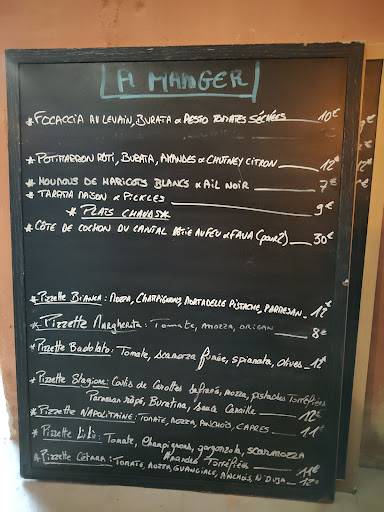 A MANGER
* FOCACCIA AU LEVAIN, BURATA & PESTO TOMATES SÉCHÉES 10€
* POTIMARRON RÔTI, BURATA, AMANDES & CHUTNEY CITRON 12€
* HOUMOUS DE HARICOTS BLANCS & AIL NOIR 7€
* TARAMA MAISON & PICKLES 9€
* PLATS CHAUDS *
* CÔTE DE COCHON DU CANTAL RÔTIE AU FEU & FAVA (pour 2) 30€
* Pizzette BIANCA : MOZZA, CHAMPIGNONS, MORTADELLE PISTACHE, PARMESAN 12€
* Pizzette Margherita : Tomate, MOZZA, ORIGAN 8€
* Pizzette Badolato : Tomate, scamorza fumée, spianata, olives 12€
* Pizzette Stagione : Carottes safranés, mozza, pistaches Torréfiées
Parmesan râpé, Buratina, sauce
12€
* Pizzette NAPOLITAINE : TOMATE, MOZZA, ANCHOIS, CAPRES 11€
* Pizzette Lili : Tomate, Champignons, gorgonzola, scamorza
Amandes Torréfiées 11€
* Pizzette CETARA : TOMATE, MOZZA, GUANCIALE, ANCHOIS, N'DUJA 12€